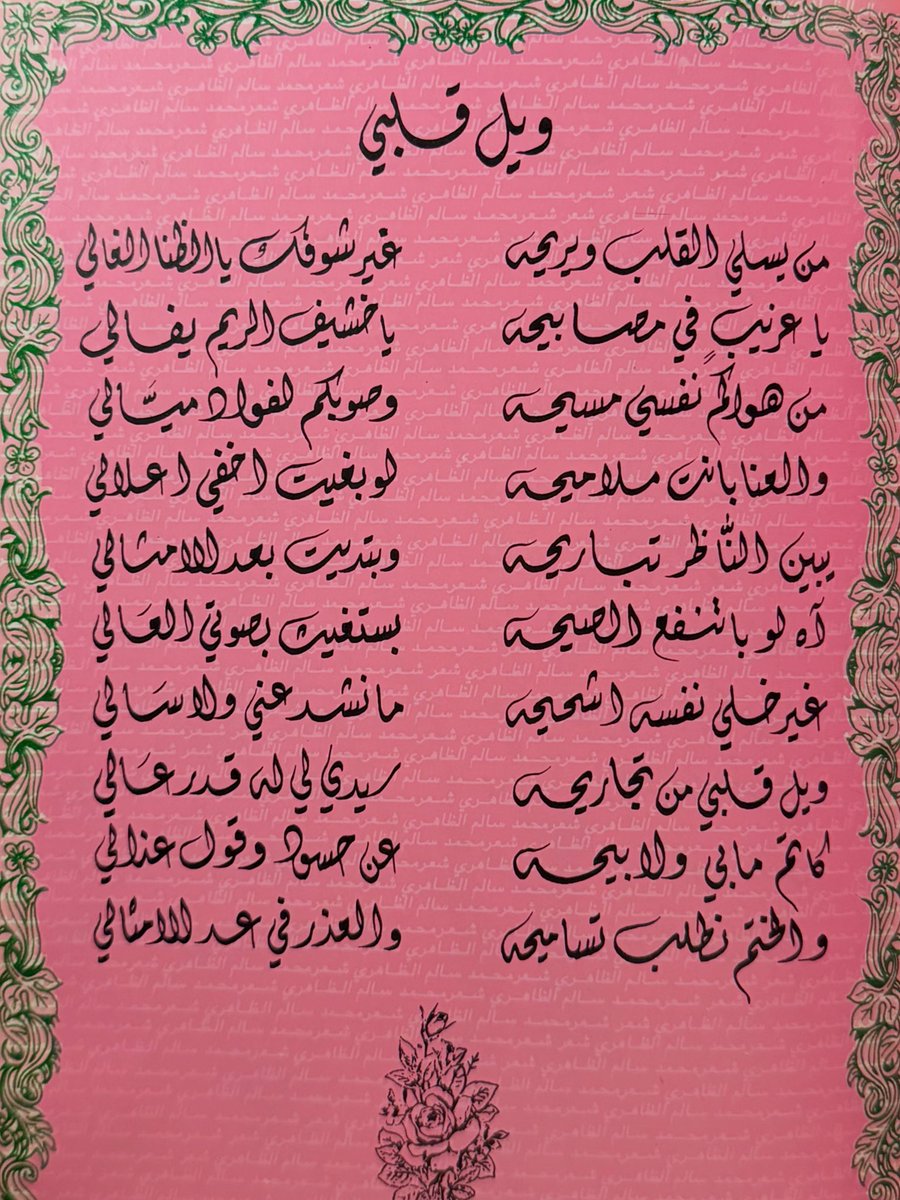 ويل قلبي
من يسلي القلب ويريحه غير شوفك يا الظنا الغالي
يا عربيب في مصابيحه يا خشيف الريم يفالي
من هواكم نفسي مسيحه وصوبكم لفواد ميّالي
والعنا بانت ملاميحه لو بغيت اخفي اعلالي
يبين النّاظر تباريحه وبتديت بعد الامثالي
آه لو با تنفع الصيحه بستغيث بصوتي العالي
غير خلي نفسه اشحيحه ما نشد عني ولا سالي
ويل قلبي من تجاريحه سيدي لي له قدر عالي
كاتم مابي ولا بيحه عن حسود وقول عذالي
والختم نطلب تساميحه والعذر في عد الامثالي
شعر محمد سالم الظاهري